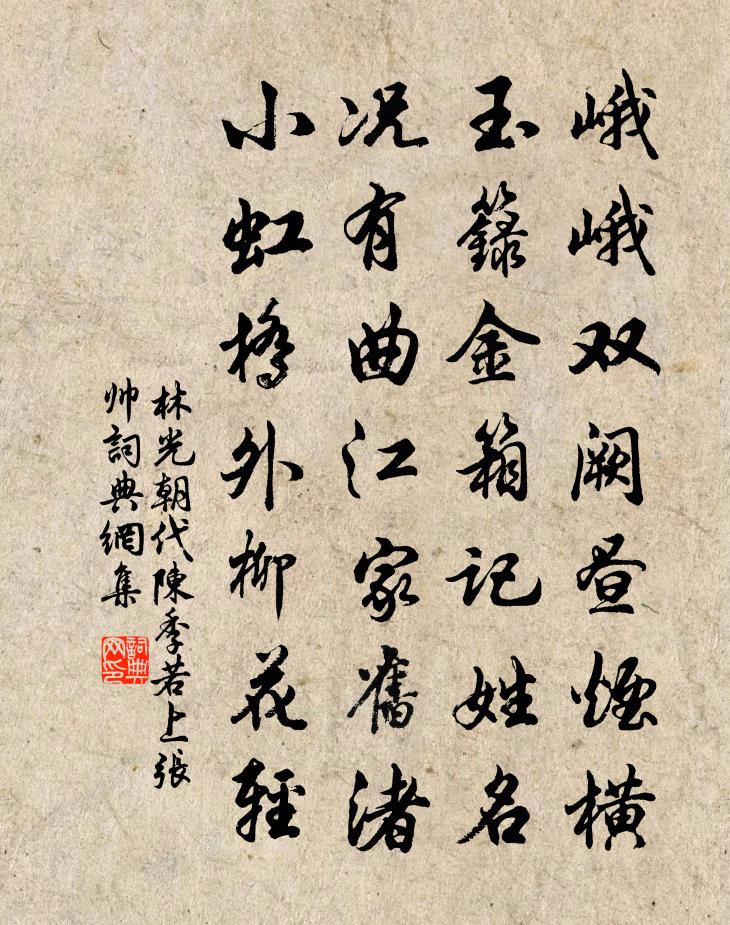 峨峨双阙昼烟横
玉籙金箱记姓名
况有曲江家舊渚
小虹橋外柳花輕
林光朝代陳季若上張
帅詞典網集
詞典网印